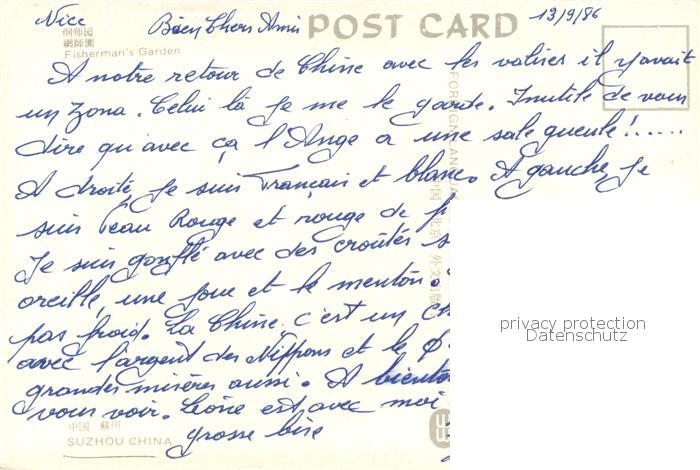 Nice Bien Chers Amis 13/9/86
POST CARD
网师园
網師園
Fisherman's Garden
A notre retour de Chine avec les valises il y avait
un Zona. Celui là je me le garde. Inutile de vous
dire qu'avec ça l'Ange a une sale gueule!.....
A droite, je suis Français et blanc. A gauche, je
suis Peau Rouge et rouge de p
Je suis gonflé avec des croûtes s
oreille, une joue et le menton.
pas froid. La Chine c'est un ch
avec l'argent des Nippons et le
grandes misères aussi. A bientô
vous voir. Line est avec moi
grosse bise
中国 蘇州
SUZHOU CHINA
FOREIGN LANGUA
中国 北京 外文出版
privacy protection
Datenschutz